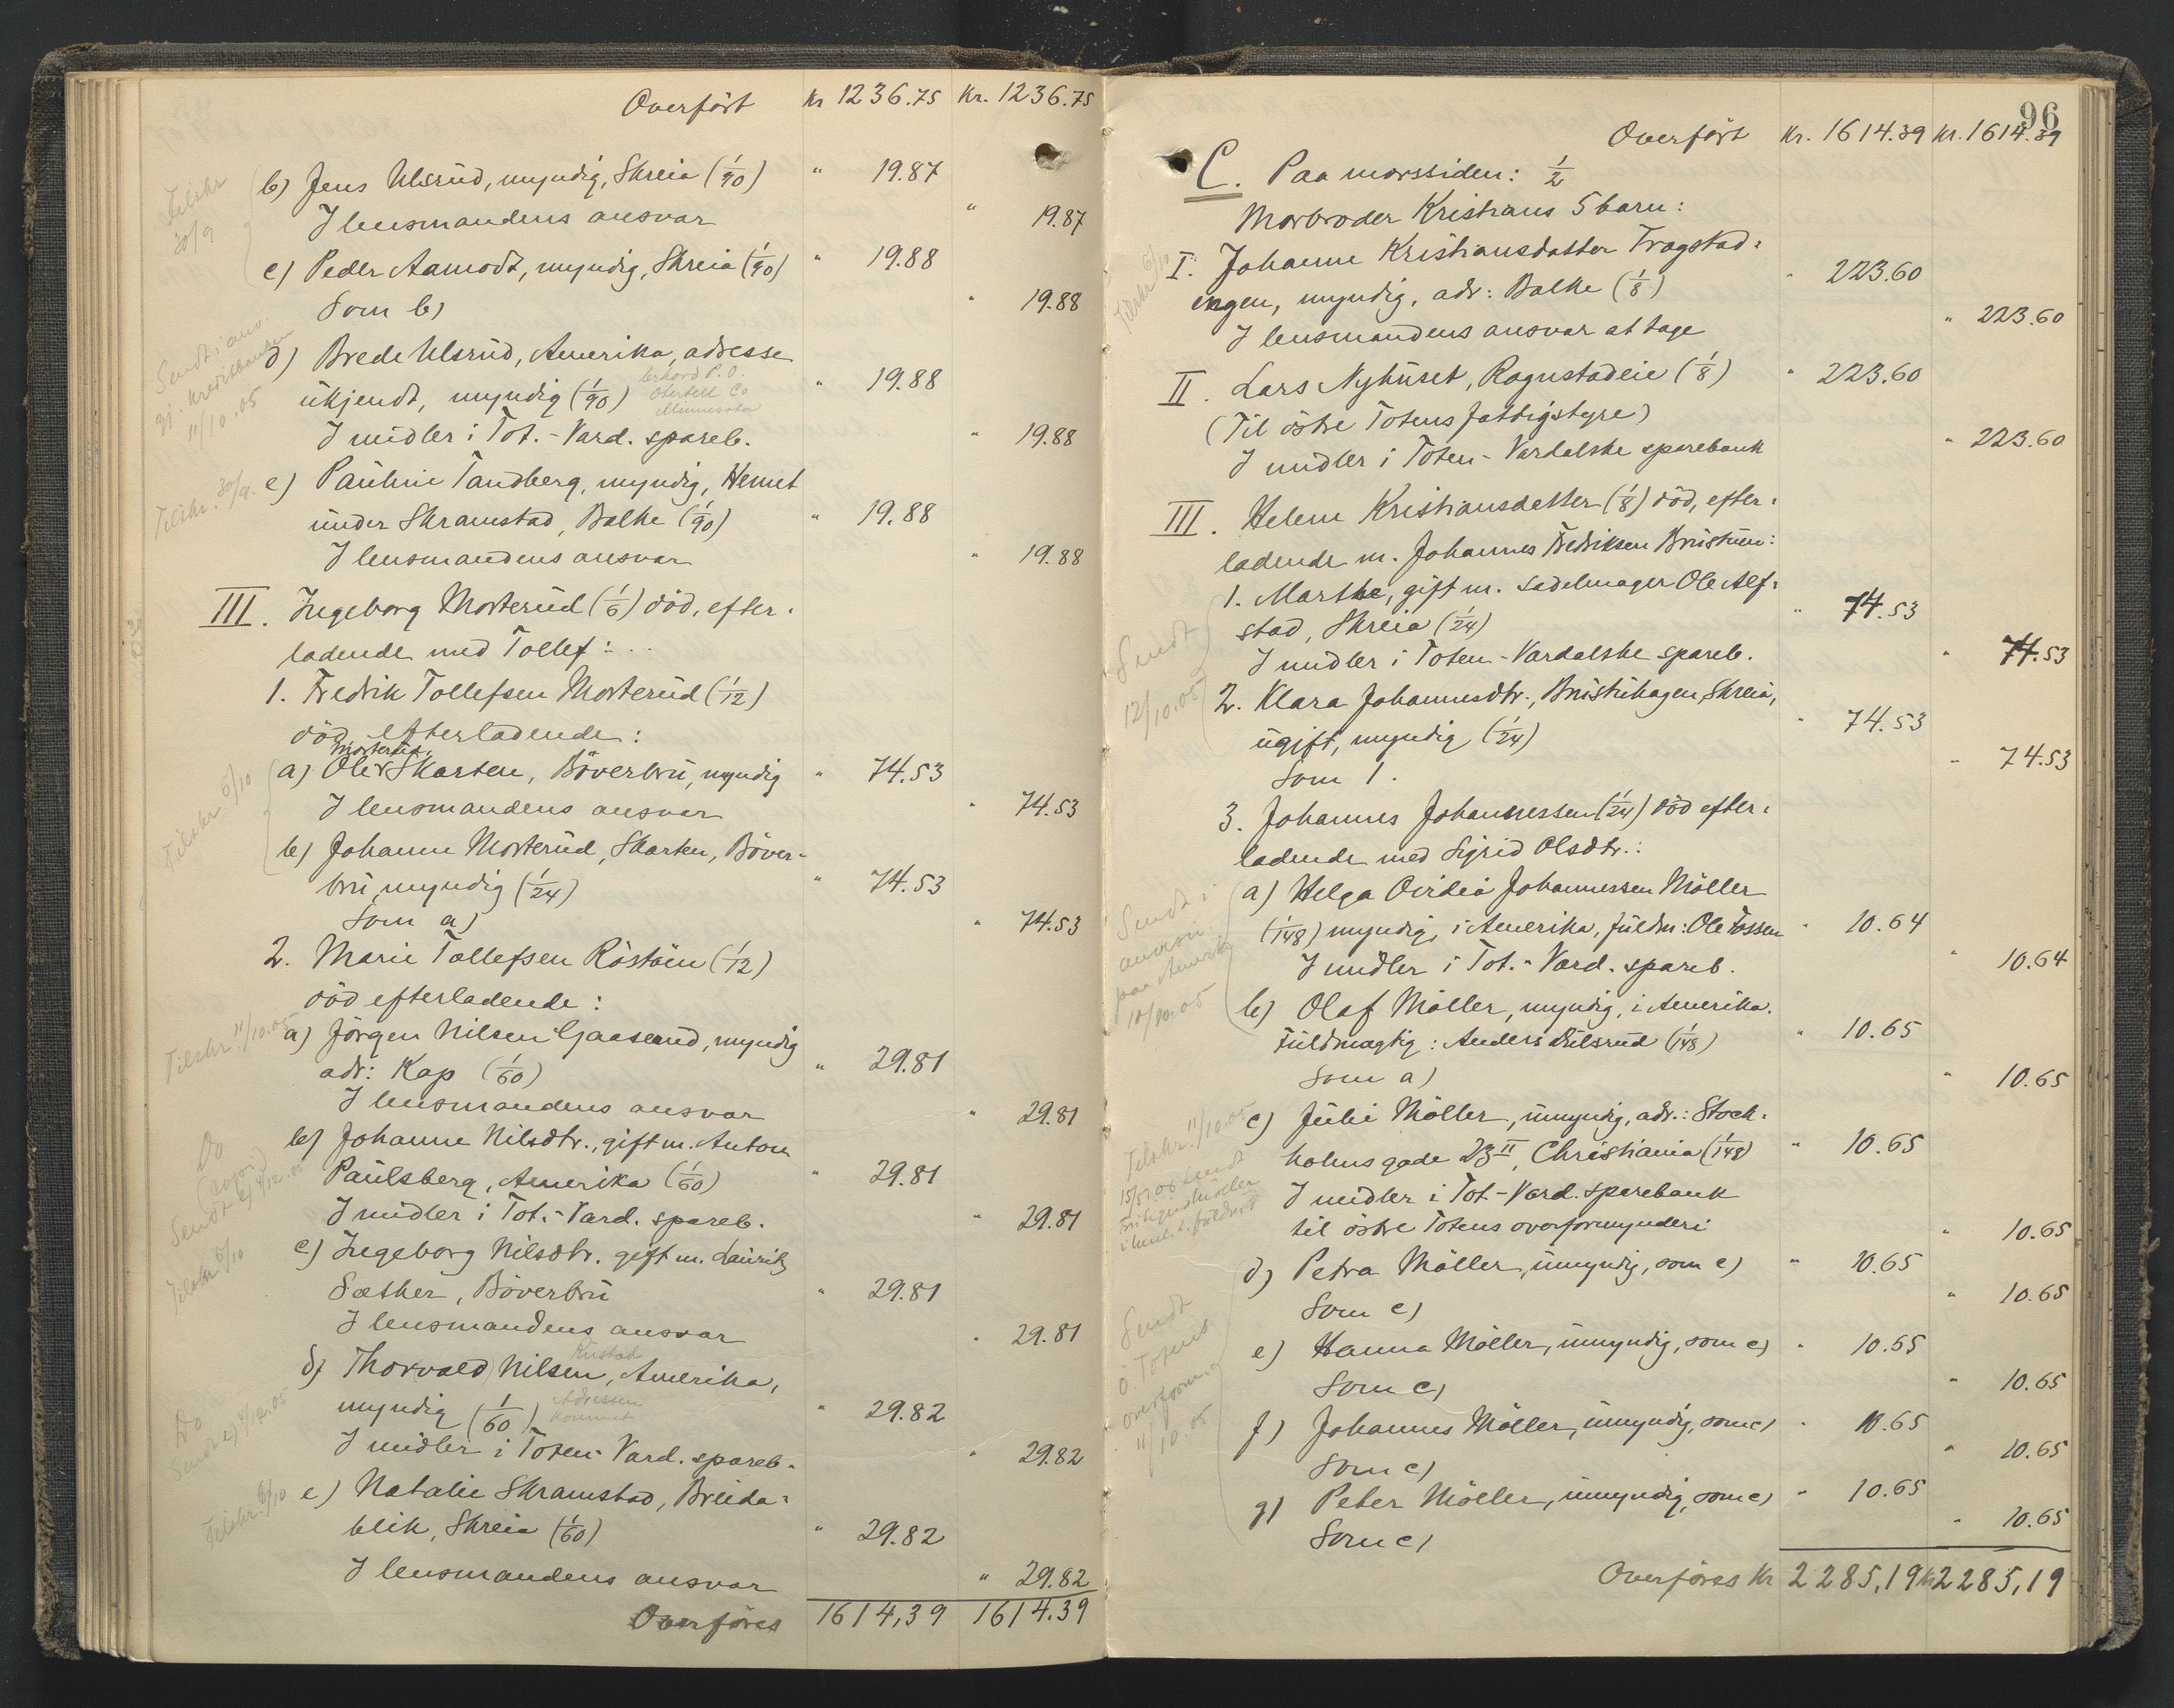 Overført Kr 1236.75 Kr. 1236.75
b) Jens Ulsrud, myndig, Skreia (1/90) " 19.87
I lensmandens ansvar " 19.87
c) Peder Aamodt, myndig, Skreia (1/90) " 19.88
Som b) " 19.88
Tilskr 30/9
d) Brede Ulsrud, Amerika, adresse
ukjendt, myndig (1/90) " 19.88
P.O.
Ottertell Co
Minnesota
I midler i Tot.-Vard. spareb. " 19.88
Sendt i anv.
gj. Kreditbanken
11/10.05
e) Pauline Tandberg, myndig, Hemet
under Skramstad, Balke (1/90) " 19.88
I lensmandens ansvar " 19.88
Tilskr. 30/9.
III. Ingeborg Mosterud (1/6) död, efter-
ladende med Tollef:
1. Fredrik Tollefsen Mosterud (1/12)
död efterladende:
Mosterud,
a) Ole Skarten, Böverbru, myndig " 74.53
I lensmandens ansvar " 74.53
b) Johanne Mosterud, Skarten, Böver-
bru, myndig (1/24) " 74.53
Som a) " 74.53
Tilskr 6/10
2. Marie Tollefsen Röstöen (1/12)
död efterladende:
a) Jörgen Nilsen Gaaserud, myndig
adr: Kap (1/60) " 29.81
I lensmandens ansvar " 29.81
Tilskr. 11/10.05
b) Johanne Nilsdtr., gift m. Anton
Paulsberg, Amerika (1/60) " 29.81
I midler i Tot.-Vard. spareb. " 29.81
Do
Sendt 4/12.05
c) Ingeborg Nilsdtr. gift m. Lauritz
Sæther, Böverbru " 29.81
I lensmandens ansvar " 29.81
Tilskr 6/10
Rustad
d) Thorvald Nilsen, Amerika,
myndig (1/60) " 29.82
Adressen
kommet
I midler i Toten-Vard. spareb. " 29.82
Do
Sendt 4/12.05
e) Natalie Skramstad, Breida-
blik, Skreia (1/60) " 29.82
I lensmandens ansvar " 29.82
Tilskr. 6/10
Overföres 1614,39 1614.39
96
Overført Kr. 1614.39 Kr. 1614.39
C. Paa morssiden: 1/2
Morbroder Kristians 5 barn:
I. Johanne Kristiansdatter Fragstad-
engen, myndig, adr: Balke (1/8) " 223.60
I lensmandens ansvar at tage " 223.60
Tilskr 6/10
II. Lars Nyhuset, Rognstadeie (1/8) " 223.60
(Til östre Totens fattigstyre)
I midler i Toten-Vardalske sparebank " 223.60
III. Helene Kristiansdatter (1/8) död, efter-
ladende m. Johannes Fredriksen Brustuen:
1. Marthe, gift m. sadelmager Ole Alf-
stad, Skreia (1/24) " 74.53
I midler i Toten-Vardalske spareb. " 74.53
2. Klara Johannesdtr., Brustuhagen, Skreia,
ugift, myndig (1/24) " 74.53
Som 1. " 74.53
Sendt
12/10.05
3. Johannes Johannessen (1/24) död efter-
ladende med Sigrid Olsdtr.:
a) Helga Ovidia Johannessen Möller
(1/148) myndig, i Amerika, fuldm: Ole Fossen " 10.64
I midler i Tot.-Vard. spareb. " 10.64
b) Olaf Möller, myndig, i Amerika.
Fuldmægtig: Anders Dulsrud (1/148) " 10.65
Som a) " 10.65
Sendt i
anvisn.
paa Amerika
10/10.05
c) Julie Möller, umyndig, adr.: Stock-
holmsgade 23 II, Christiania (1/148) " 10.65
I midler i Tot-Vard. sparebank
til östre Totens overformynderi " 10.65
Tilskr. 11/10.05
d) Petra Möller, umyndig, som c) " 10.65
Som c) " 10.65
e) Hanna Möller, umyndig, som c) " 10.65
Som c) " 10.65
f) Johannes Möller, umyndig, som c) " 10.65
Som c) " 10.65
g) Peter Möller, umyndig, som c) " 10.65
Som c) " 10.65
Sendt
Ö. Totens
overform.
11/10.05
Overföres Kr 2285,19 Kr 2285,19